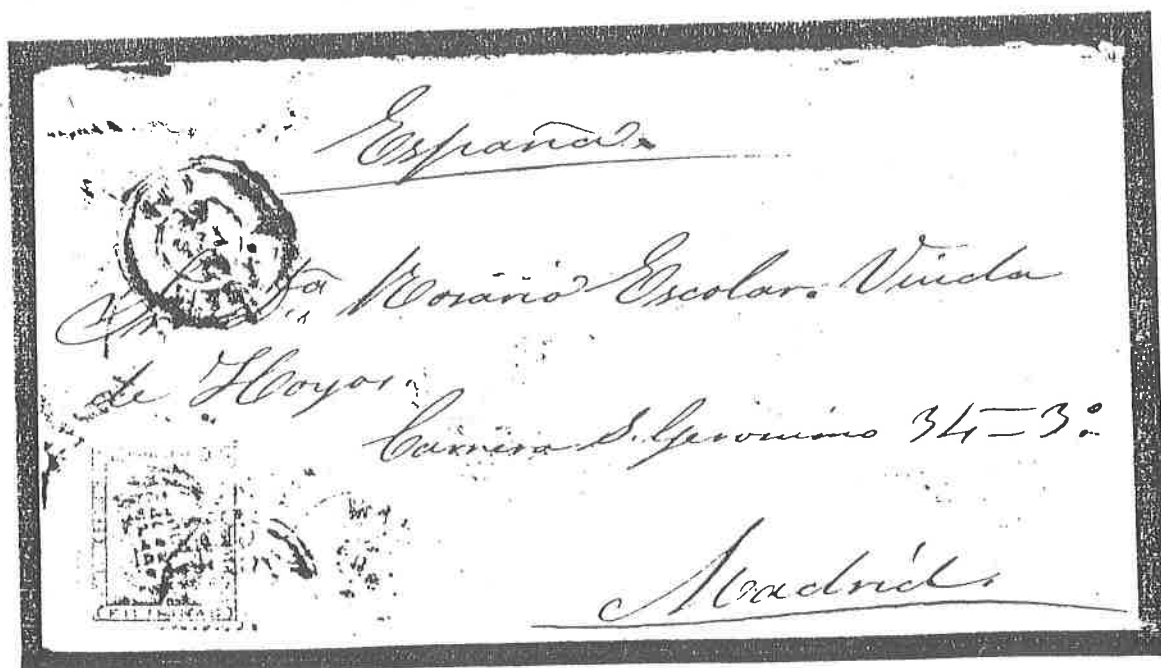 España.
Rosario Escolar. Viuda
de Hoyos.
Carrera S. Geronimo 34=3º
Madrid.
FILIPINAS